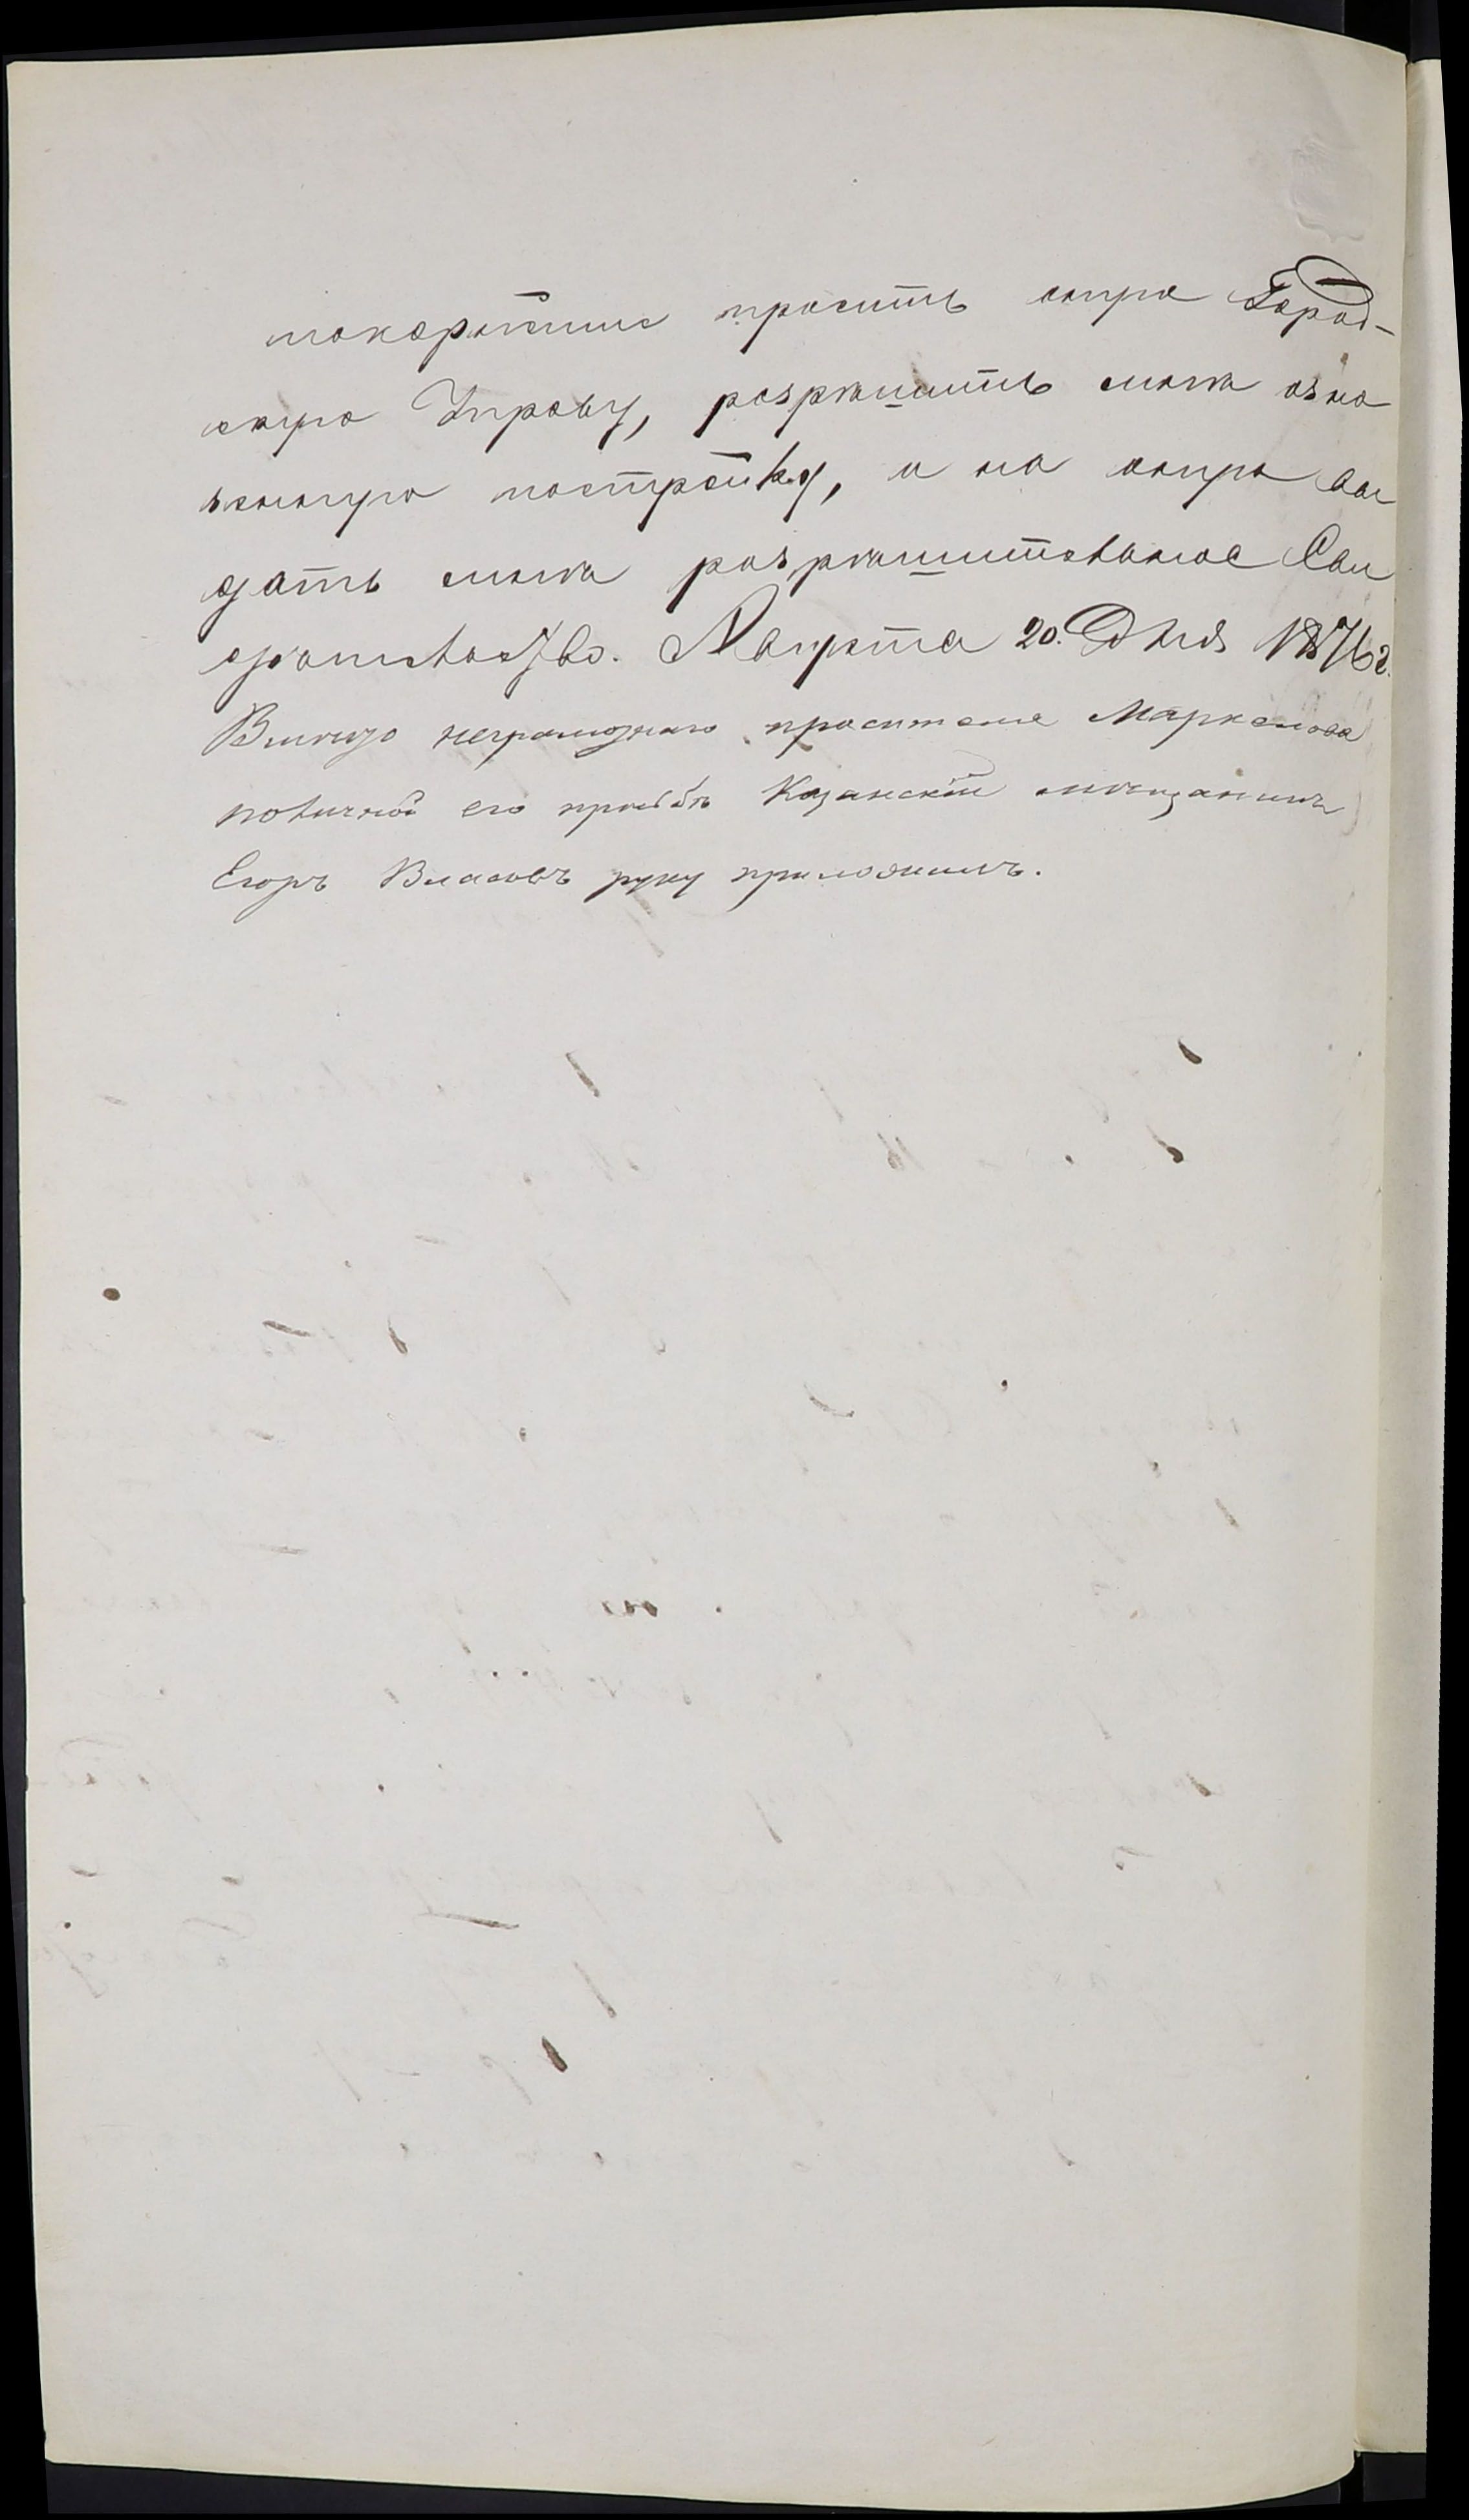 покорнейше просить оную Город-
скую Управу, разрешить мне озна
ченную постройку, и на оную вы
дать мне разрешительное Сви
детельство. Августа 20. Дня 1876 г.
Вместо неграмотнаго просителя Маркелова
поличной его прозьбе Казанский мещанинъ
Егоръ Власовъ руку приложилъ.